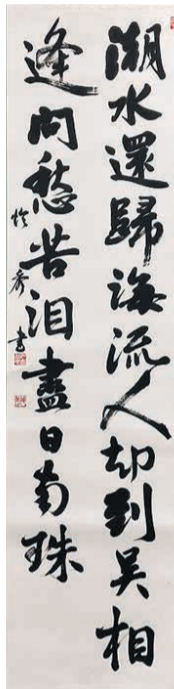 潮水還歸海流人却到吳相
逢問愁苦泪盡日南珠
書